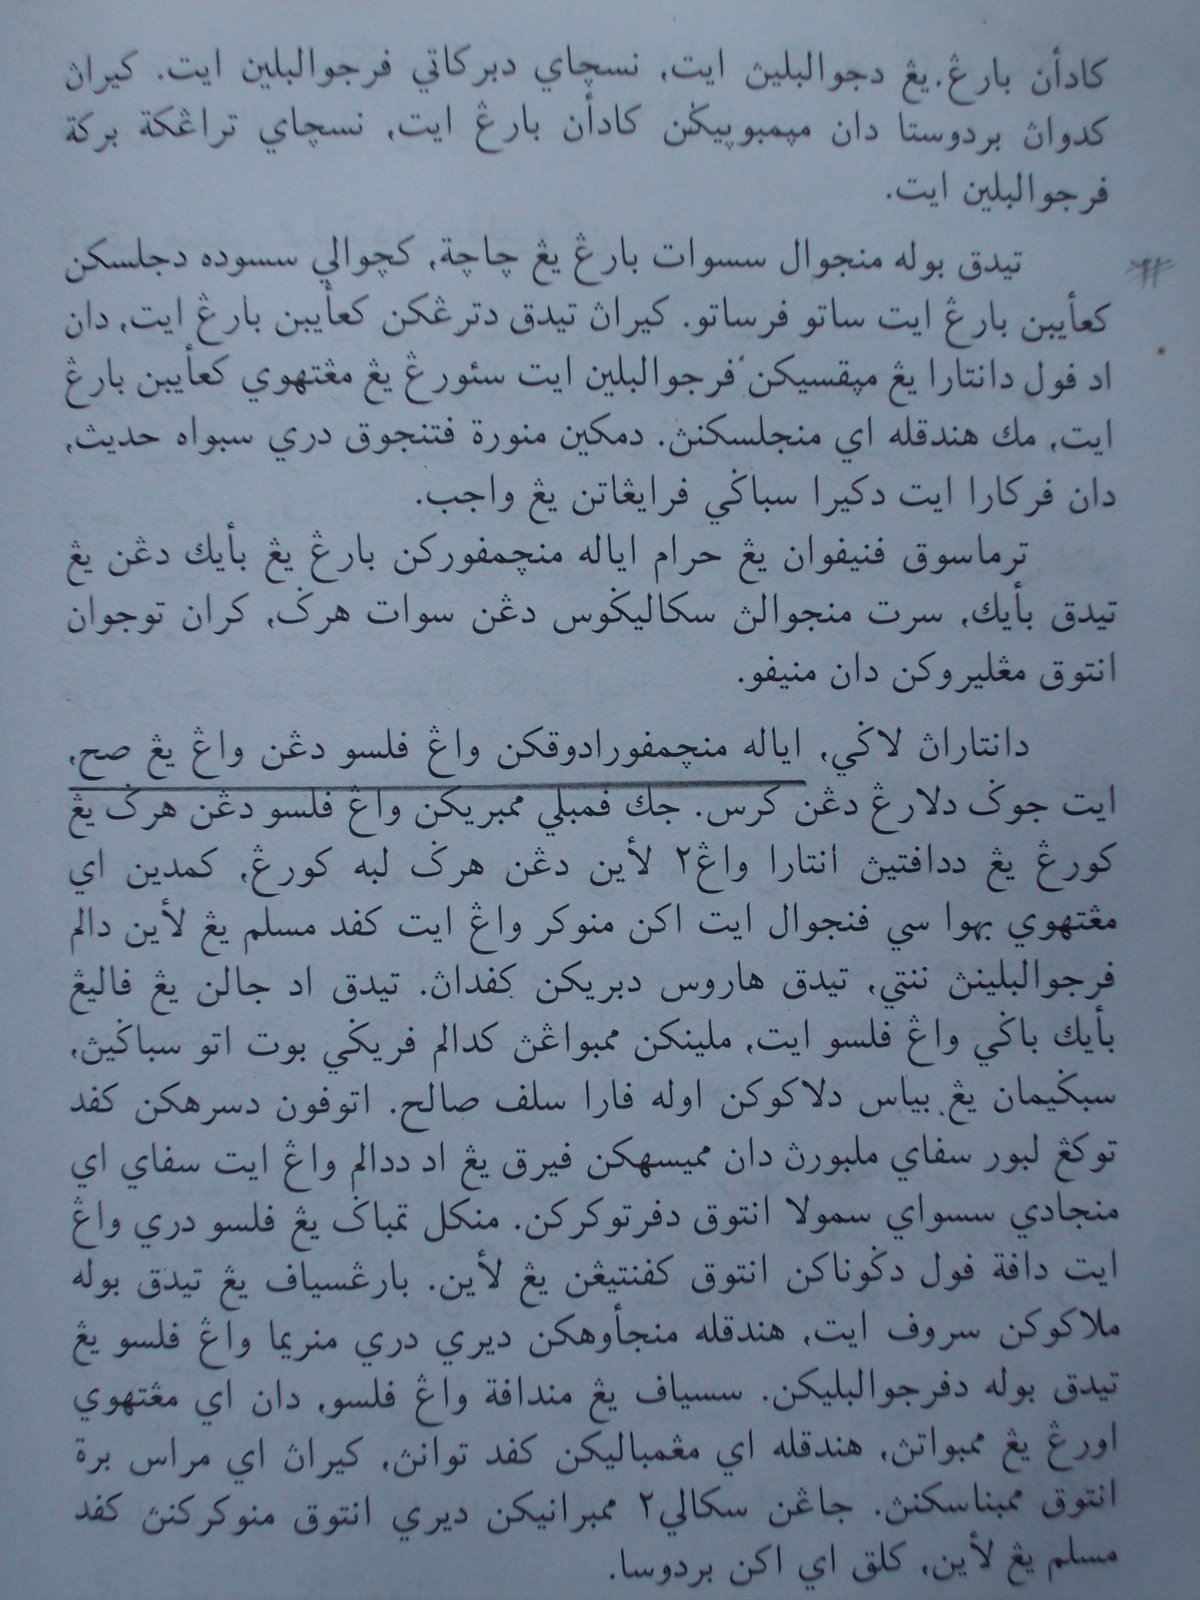 كادأن بارڠ.يڠ دجوالبليڽ ايت, نسچاي دبركاتي فرجوالبلين ايت. كيراڽ
كدواڽ بردوستا دان مڽمبوڽيكن كادأن بارڠ ايت, نسچاي تراڠكة بركة
فرجوالبلين ايت.
تيدق بوله منجوال سسوات بارڠ يڠ چاچة, كچوالي سسوده دجلسكن
كعأيبن بارڠ ايت ساتو فرساتو. كيراڽ تيدق دترڠكن كعأيبن بارڠ ايت, دان
اد فول دانتارا يڠ مڽقسيكن فرجوالبلين ايت سئورڠ يڠ مڠتهوي كعأيبن بارڠ
ايت, مك هندقله اي منجلسكنڽ. دمكين منورة فتنجوق دري سبواه حديث,
دان فركارا ايت دكيرا سباݢي فرايڠاتن يڠ واجب.
ترماسوق فنيفوان يڠ حرام اياله منچمفوركن بارڠ يڠ بأيك دڠن يڠ
تيدق بأيك, سرت منجوالڽ سكاليݢوس دڠن سوات هرݢ, كران توجوان
انتوق مڠليروكن دان منيفو.
دانتاراڽ لاݢي, اياله منچمفورادوقكن واڠ فلسو دڠن واڠ يڠ صح,
ايت جوݢ دلارڠ دڠن كرس. جك فمبلي ممبريكن واڠ فلسو دڠن هرݢ يڠ
كورڠ يڠ ددافتيڽ انتارا واڠ٢ لأين دڠن هرݢ لبه كورڠ, كمدين اي
مڠتهوي بهوا سي فنجوال ايت اكن منوكر واڠ ايت كفد مسلم يڠ لأين دالم
فرجوالبلينڽ ننتي, تيدق هاروس دبريكن كفداڽ. تيدق اد جالن يڠ فاليڠ
بأيك باݢي واڠ فلسو ايت, ملينكن ممبواڠڽ كدالم فريݢي بوت اتو سباݢيڽ,
سبݢيمان يڠ بياس دلاكوكن اوله فارا سلف صالح. اتوفون دسرهكن كفد
توكڠ لبور سفاي ملبورڽ دان مميسهكن فيرق يڠ اد ددالم واڠ ايت سفاي اي
منجادي سسواي سمولا انتوق دفرتوكركن. منكل تمباݢ يڠ فلسو دري واڠ
ايت دافة فول دݢوناكن انتوق كفنتيڠن يڠ لأين. بارڠسياف يڠ تيدق بوله
ملاكوكن سروف ايت, هندقله منجأوهكن ديري دري منريما واڠ فلسو يڠ
تيدق بوله دفرجوالبليكن. سسياف يڠ مندافة واڠ فلسو, دان اي مڠتهوي
اورڠ يڠ ممبواتڽ, هندقله اي مڠمباليكن كفد توانڽ, كيراڽ اي مراس برة
انتوق ممبناسكنڽ. جاڠن سكالي٢ ممبرانيكن ديري انتوق منوكركنڽ كفد
مسلم يڠ لأين, كلق اي اكن بردوسا.